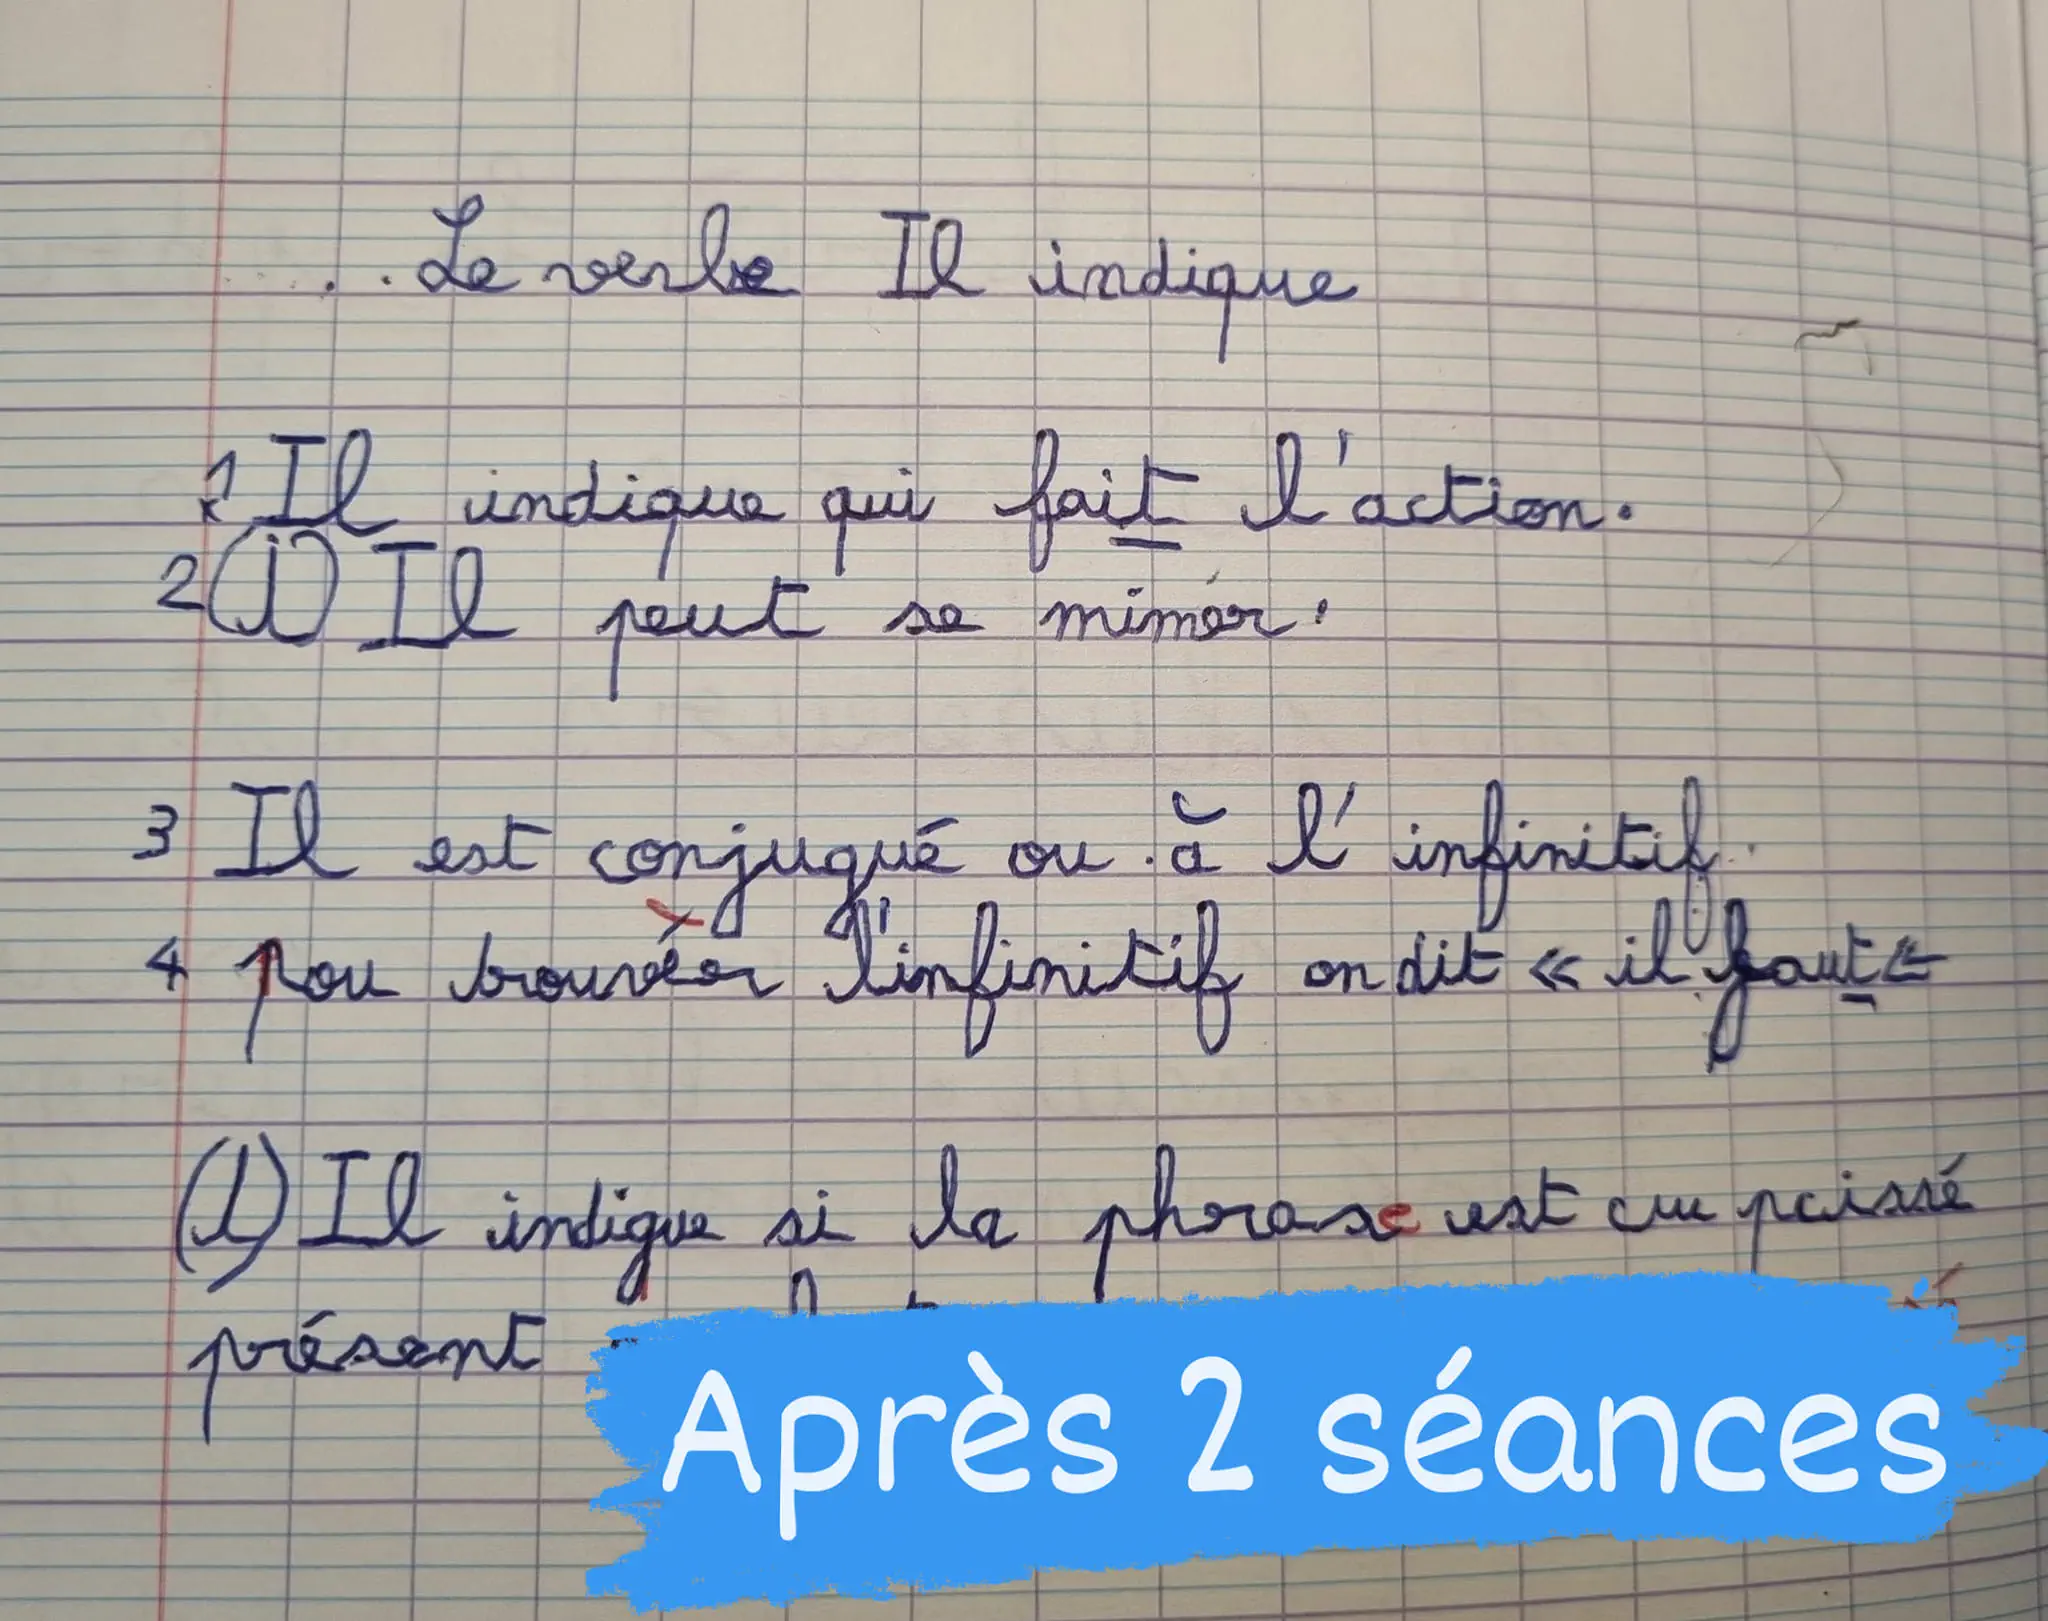 Le verbe Il indique
1 Il indique qui fait l'action.
2 (i) Il peut se mimer.
3 Il est conjugué ou à l'infinitif.
4 pou trouver l'infinitif on dit « il faut «
(1) Il indique si la phrase est au paissé
présent
Après 2 séances